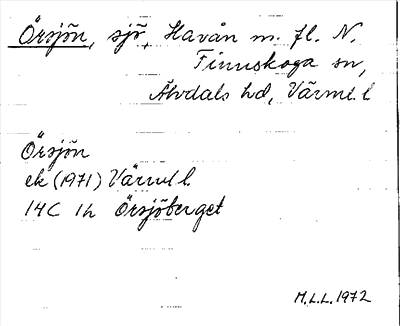 Örsjön, sjö, Havån m. fl. N.
Finnskoga sn,
Älvdals hd, Värml. l
Örsjön
ek (1971) Värml l.
14C 1h Örsjöberget
M.L.L. 1972